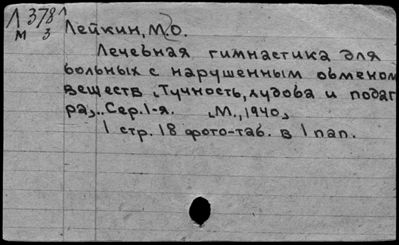 Л 378
М 3
Лейкин, М.О.
Лечебная гимнастика для
больных с нарушенным обменом
веществ „Тучность, худоба и подаг
ра„.. Сер. 1-я. „М., 1940„
1 стр. 18 фото-таб. в 1 пап.